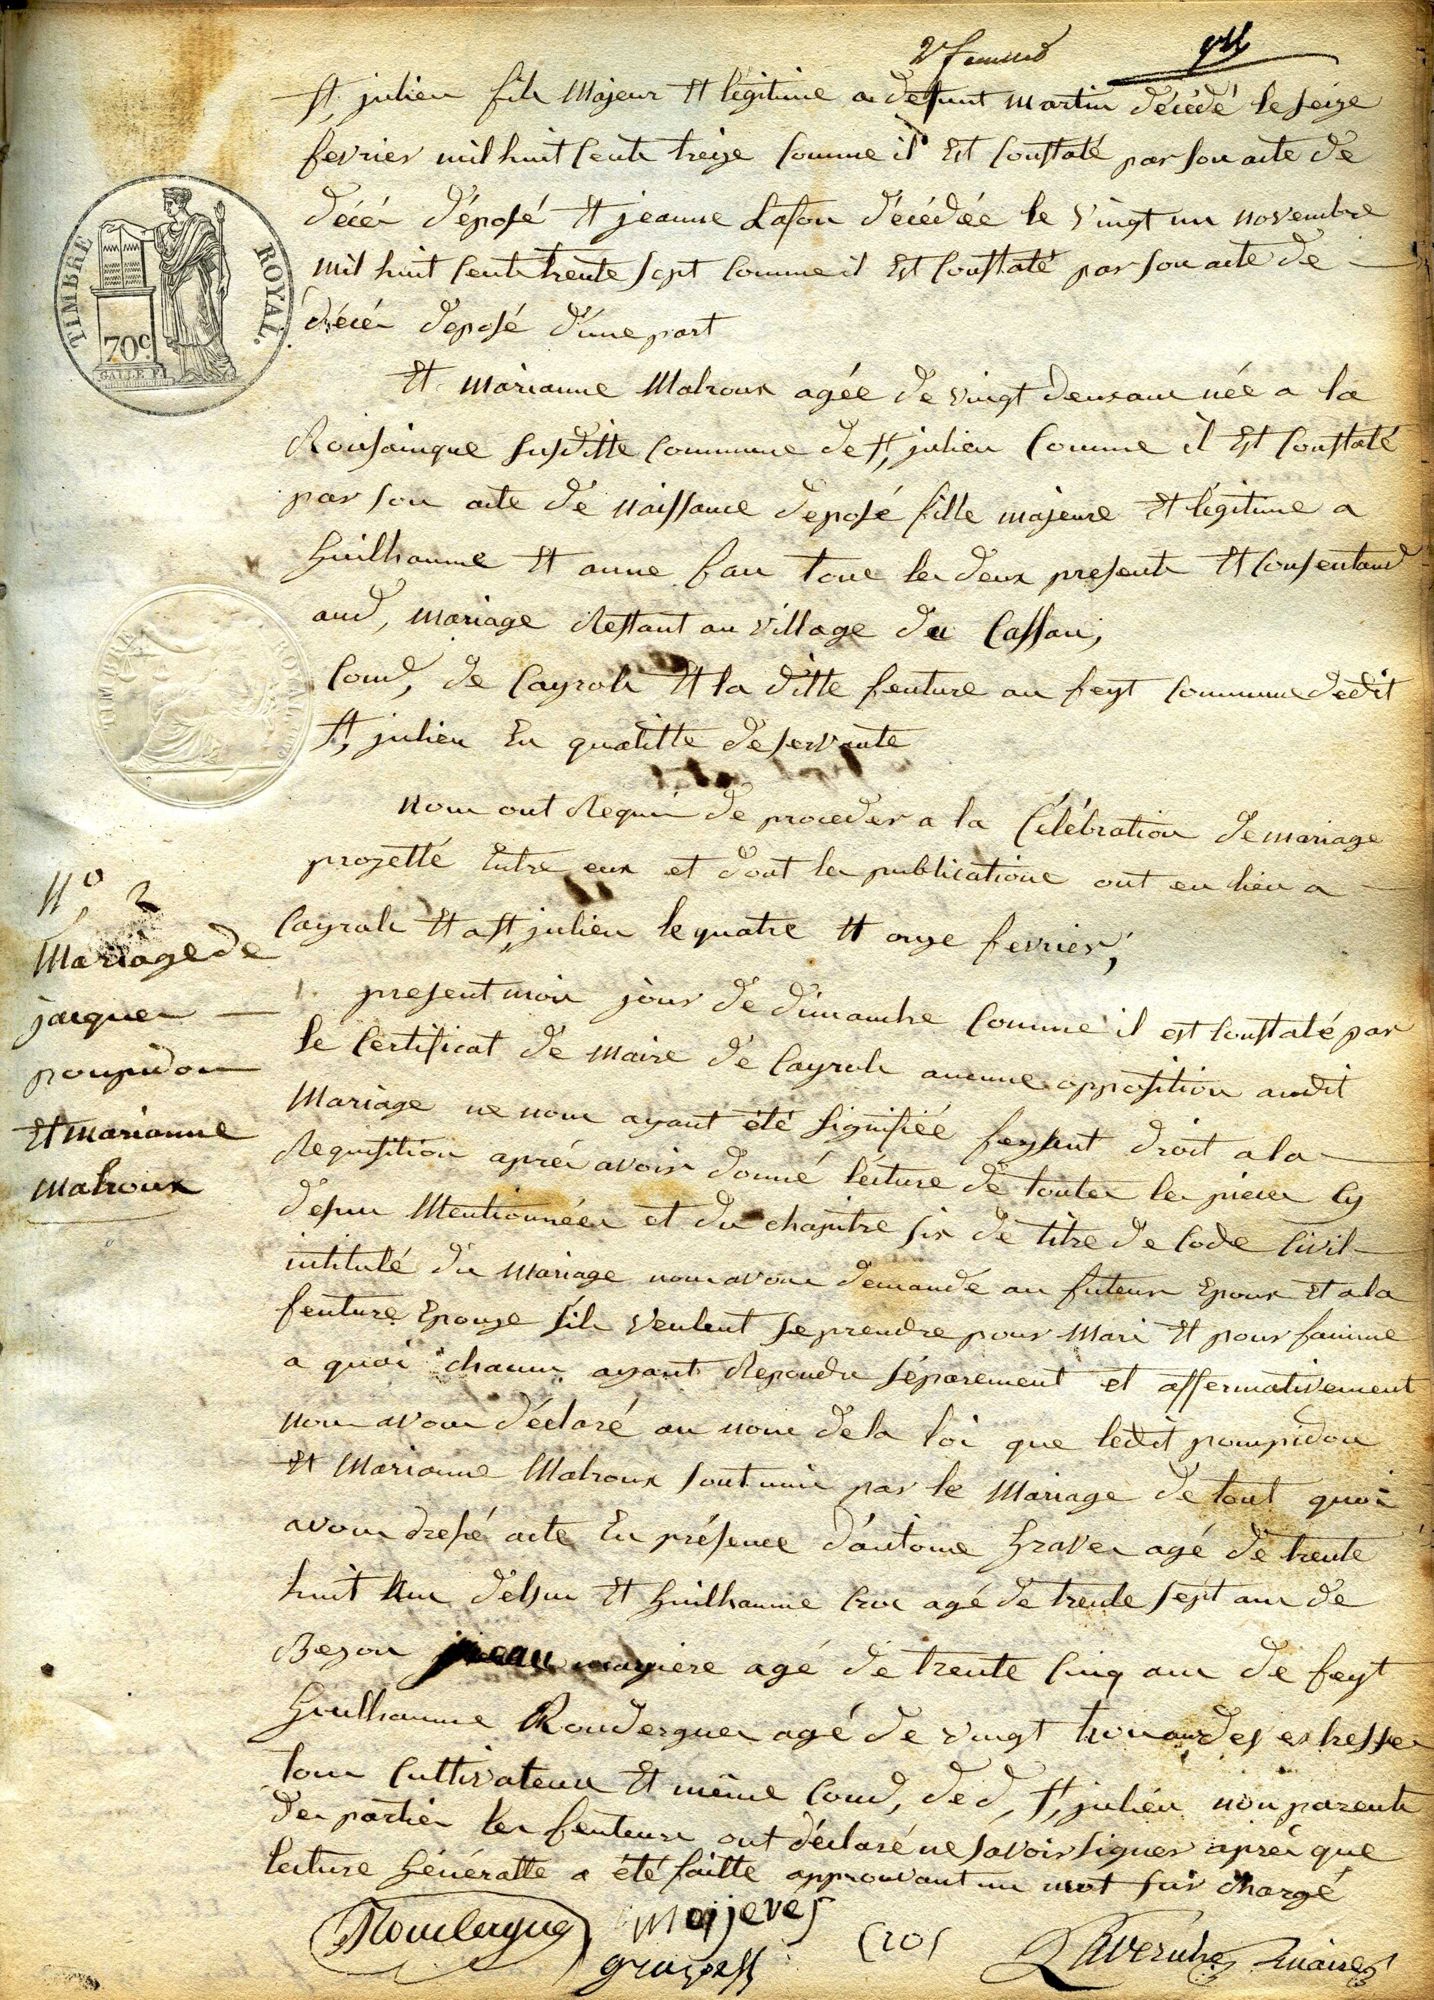 2e feuillet
St, julien fils Majeur Et légitime a defunt martin décédé le seize
fevrier mil huit cents treize Comme il Est Constaté par son acte de
décés déposé Et jeanne Lafon décédée le vingt un novembre
mil huit cents trente sept Comme il Est Constaté par son acte de
décés déposé d'une part
TIMBRE ROYAL.
70c
GALLE F.
Et marianne Malroux agée de vingt deux ans née a la
susditte Commune de St, julien Comme il Est Constaté
par son acte de naissance deposé fille majeure Et légitime a
Guilhaume Et anne fau tous les deux presents Et Consentand
aud, mariage Restant au village de Cassan,
Comd, de Cayrols Et la ditte feuture au feyt Commune dedit
St, julien En qualitte de servante
TIMBRE ROYAL
nous ont Requis de proceder a la Célébration de mariage
projetté Entre eux et dont les publications ont eu lieu a
Cayrols Et a St, julien le quatre Et onze fevrier,
No, 2
Mariage de
jacques
poupidou
Et marianne
malroux
present mois jours de dimanche Comme il est Constaté par
le Certificat de Maire de Cayrols aucune opposition audit
Mariage ne nous ayant été signifiée feysant droit a la
Requisition aprés avoir donné lecture de toutes les pieces Cy
desus Mentionnées et du chapitre six de titre de Code Civil
intitulé du Mariage nous avons demandé au futeur Epoux Et a la
feuture Epouze s'ils veulent se prendre pour Mari Et pour famme
a quoi chacun ayant Repondu séparement et affermativement
nous avons déclaré au nom de la loi que ledit pompidou
Et Marianne Malroux sont unis par le Mariage de tout quoi
avons dressé acte En présence d'antoine Graves agé de trente
huit ans Et Guilhaume Cros agé de trente sept ans de
agé de trente Cinq ans de feyt
Guilhaume Roudergues agé de vingt trois ans
tous Cultivateurs Et même Comd, de d, St, julien non parents
des parties les feuteurs ont déclaré ne savoir signer aprés que
lecture Généralle a été faitte approuvant un mot sur chargé
Roudergues Majeres
graves
Cros
Laverinhe, maire